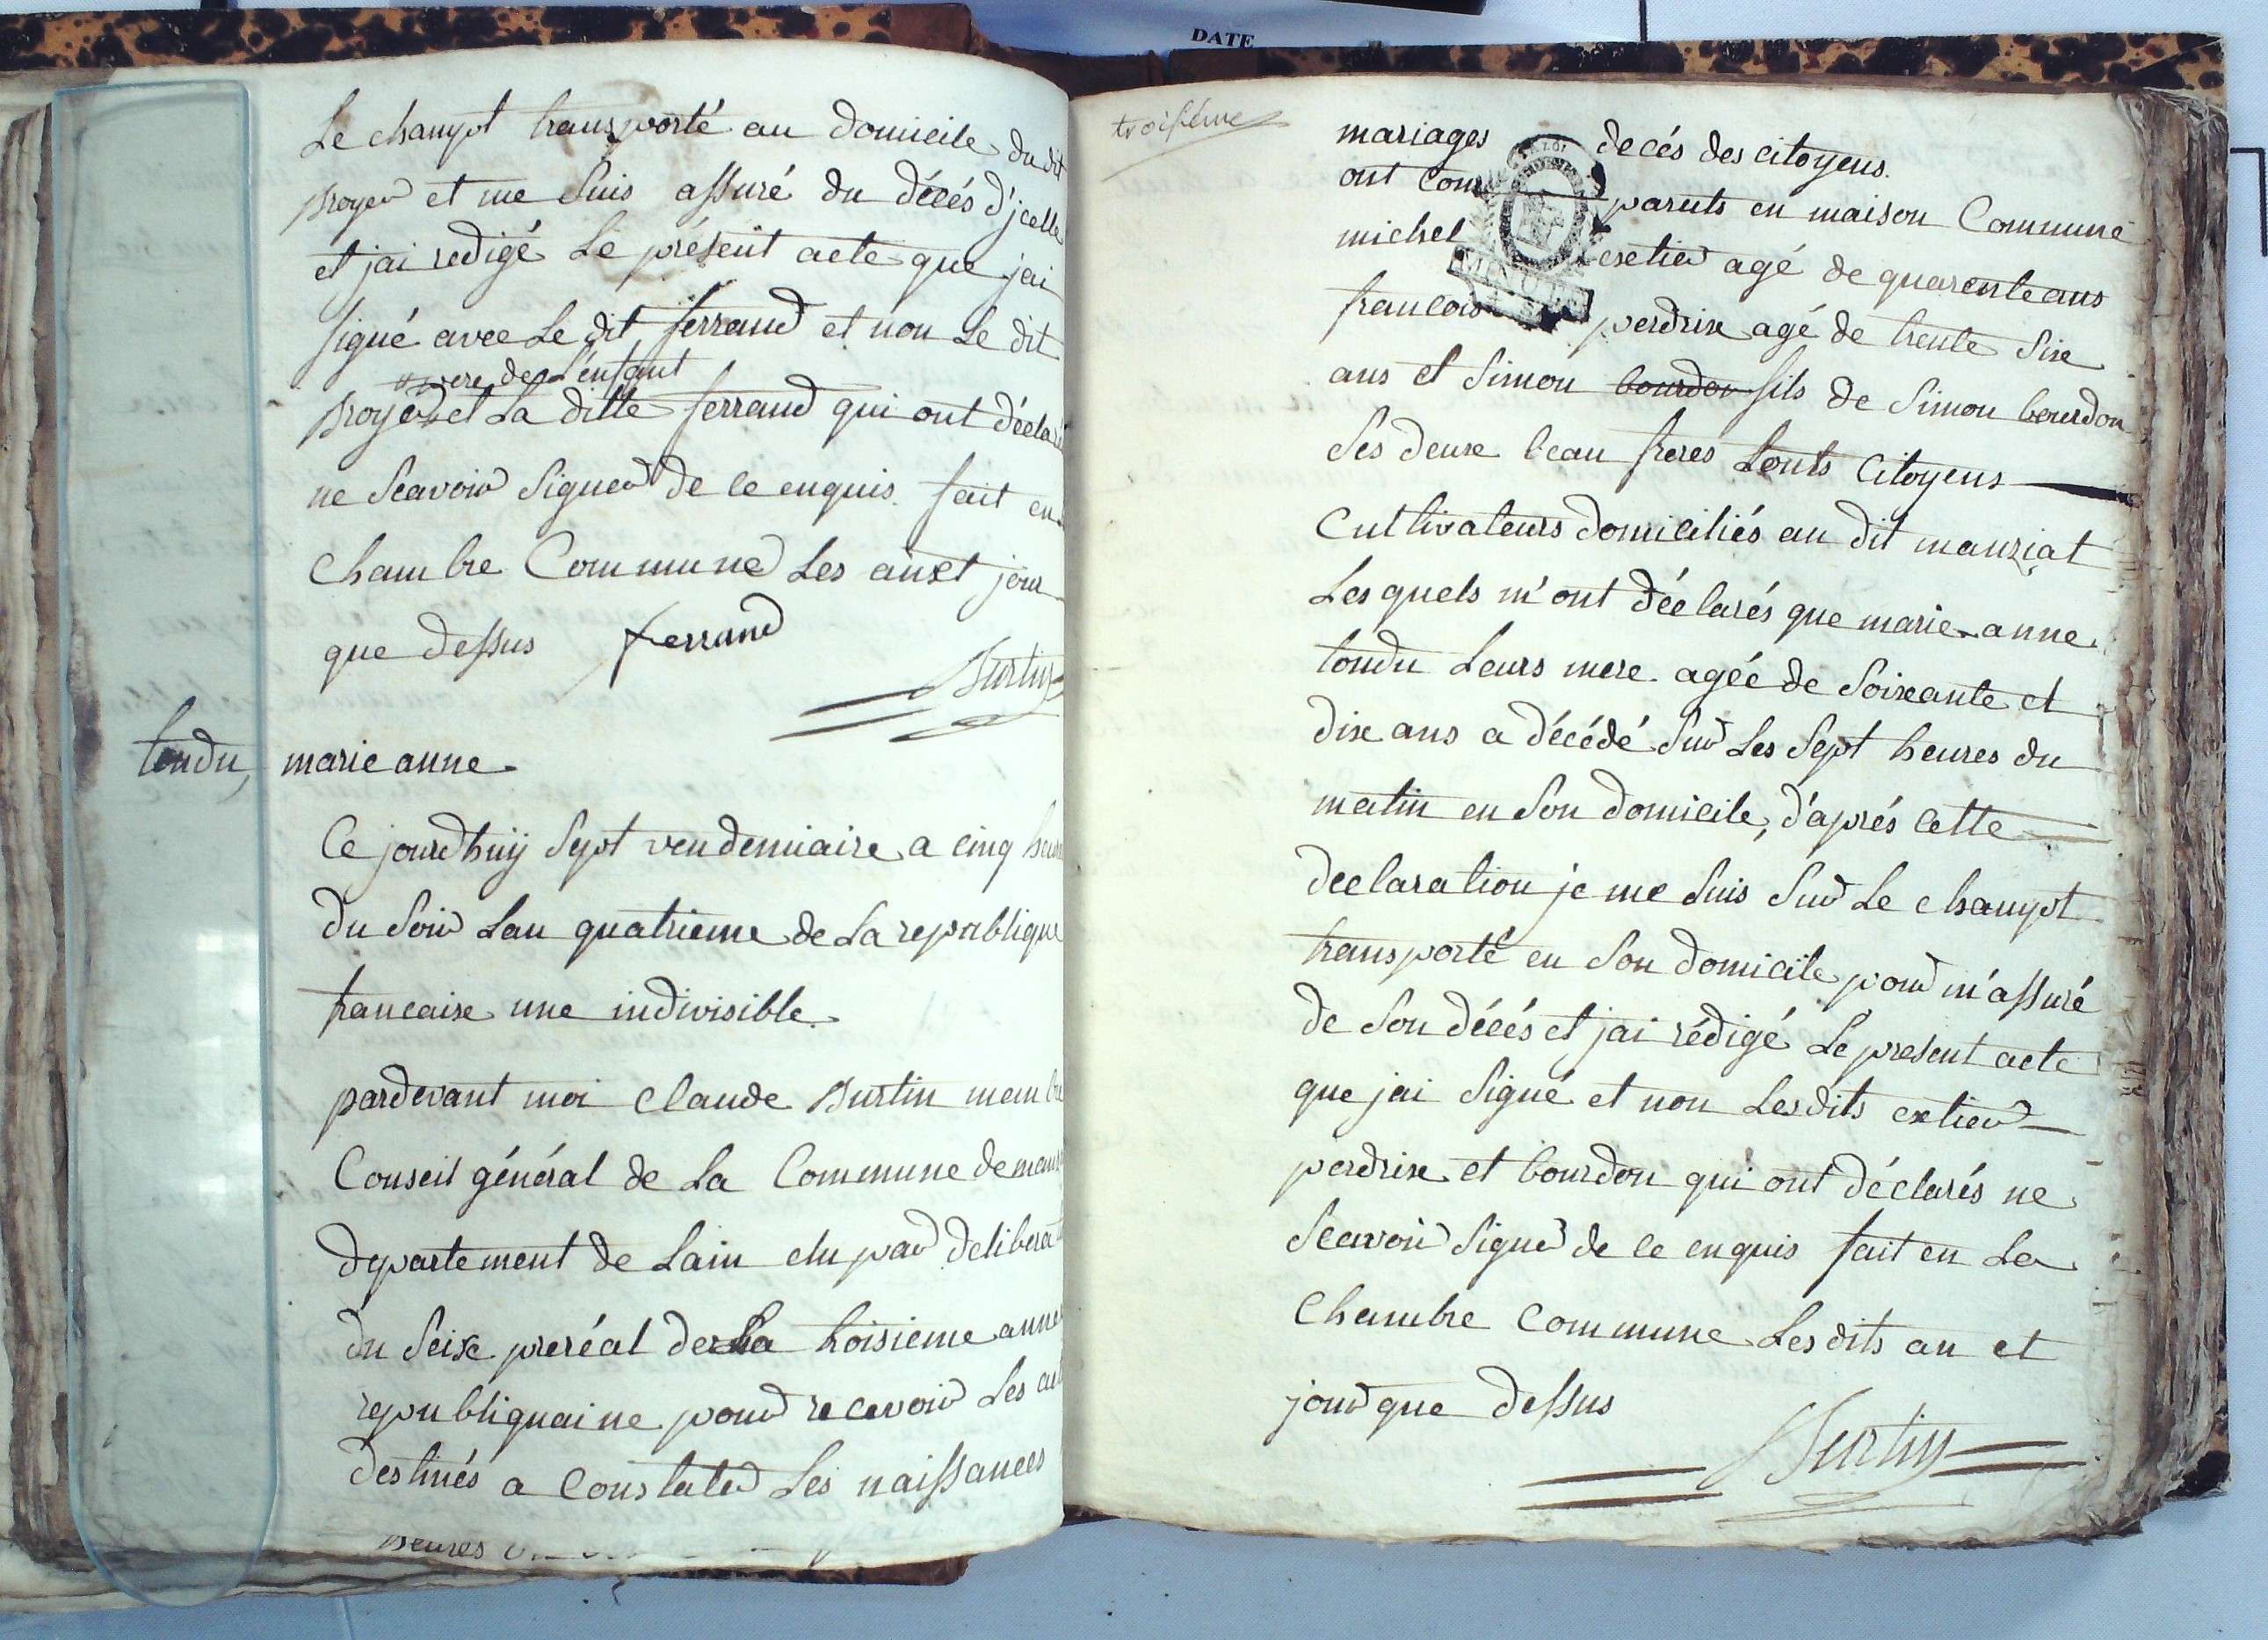 DATE
Le champt transporté au domicile du dit
proyer et me suis assuré du décés d'jcelle
et jai redigé Le présent acte que jai
signé avec Le dit ferrand et non Le dit
pere de L'enfant
proyer et La ditte ferrand qui ont déclaré
ne scavoir signer de ce enquis. fait en
chambre Commune Les an et jour
que dessus ferrand
Burtin
tondu, marie anne
Ce jourdhuÿ sept vendemiaire a cinq heures
du soir Lan quatrieme de La republique
francaise une indivisible.
pardevant moi Claude Burtin membre
Conseil général de La Commune de
departement de Lain elu par
du seize preréal de La troisieme année
republiquaine pour recevoir Les
destinés a Constater Les naissances
heures
troisiéme
mariages decés des citoyens.
ont comparuts en maison Commune
michel extier agé de quarente ans
francois perdrix agé de trente six
ans et simon bourdon fils de simon bourdon
ses deux beau freres touts citoyens
cultivateurs domiciliés au dit manziat
Lesquels m'ont déclarés que marie anne
tondu Leurs mere agée de soixante et
dix ans a décédé sur Les sept heures du
matin en son domicile, d'aprés cette
declaration je me suis sur Le champt
transporté en son domicile pour m'assuré
de son décés et jai rédigé Le present acte
que jai signé et non Lesdits extier
perdrix et bourdon qui ont déclarés ne
scavoir signer de ce enquis fait en La
Chambre Commune Lesdits an et
jour que dessus
Burtin